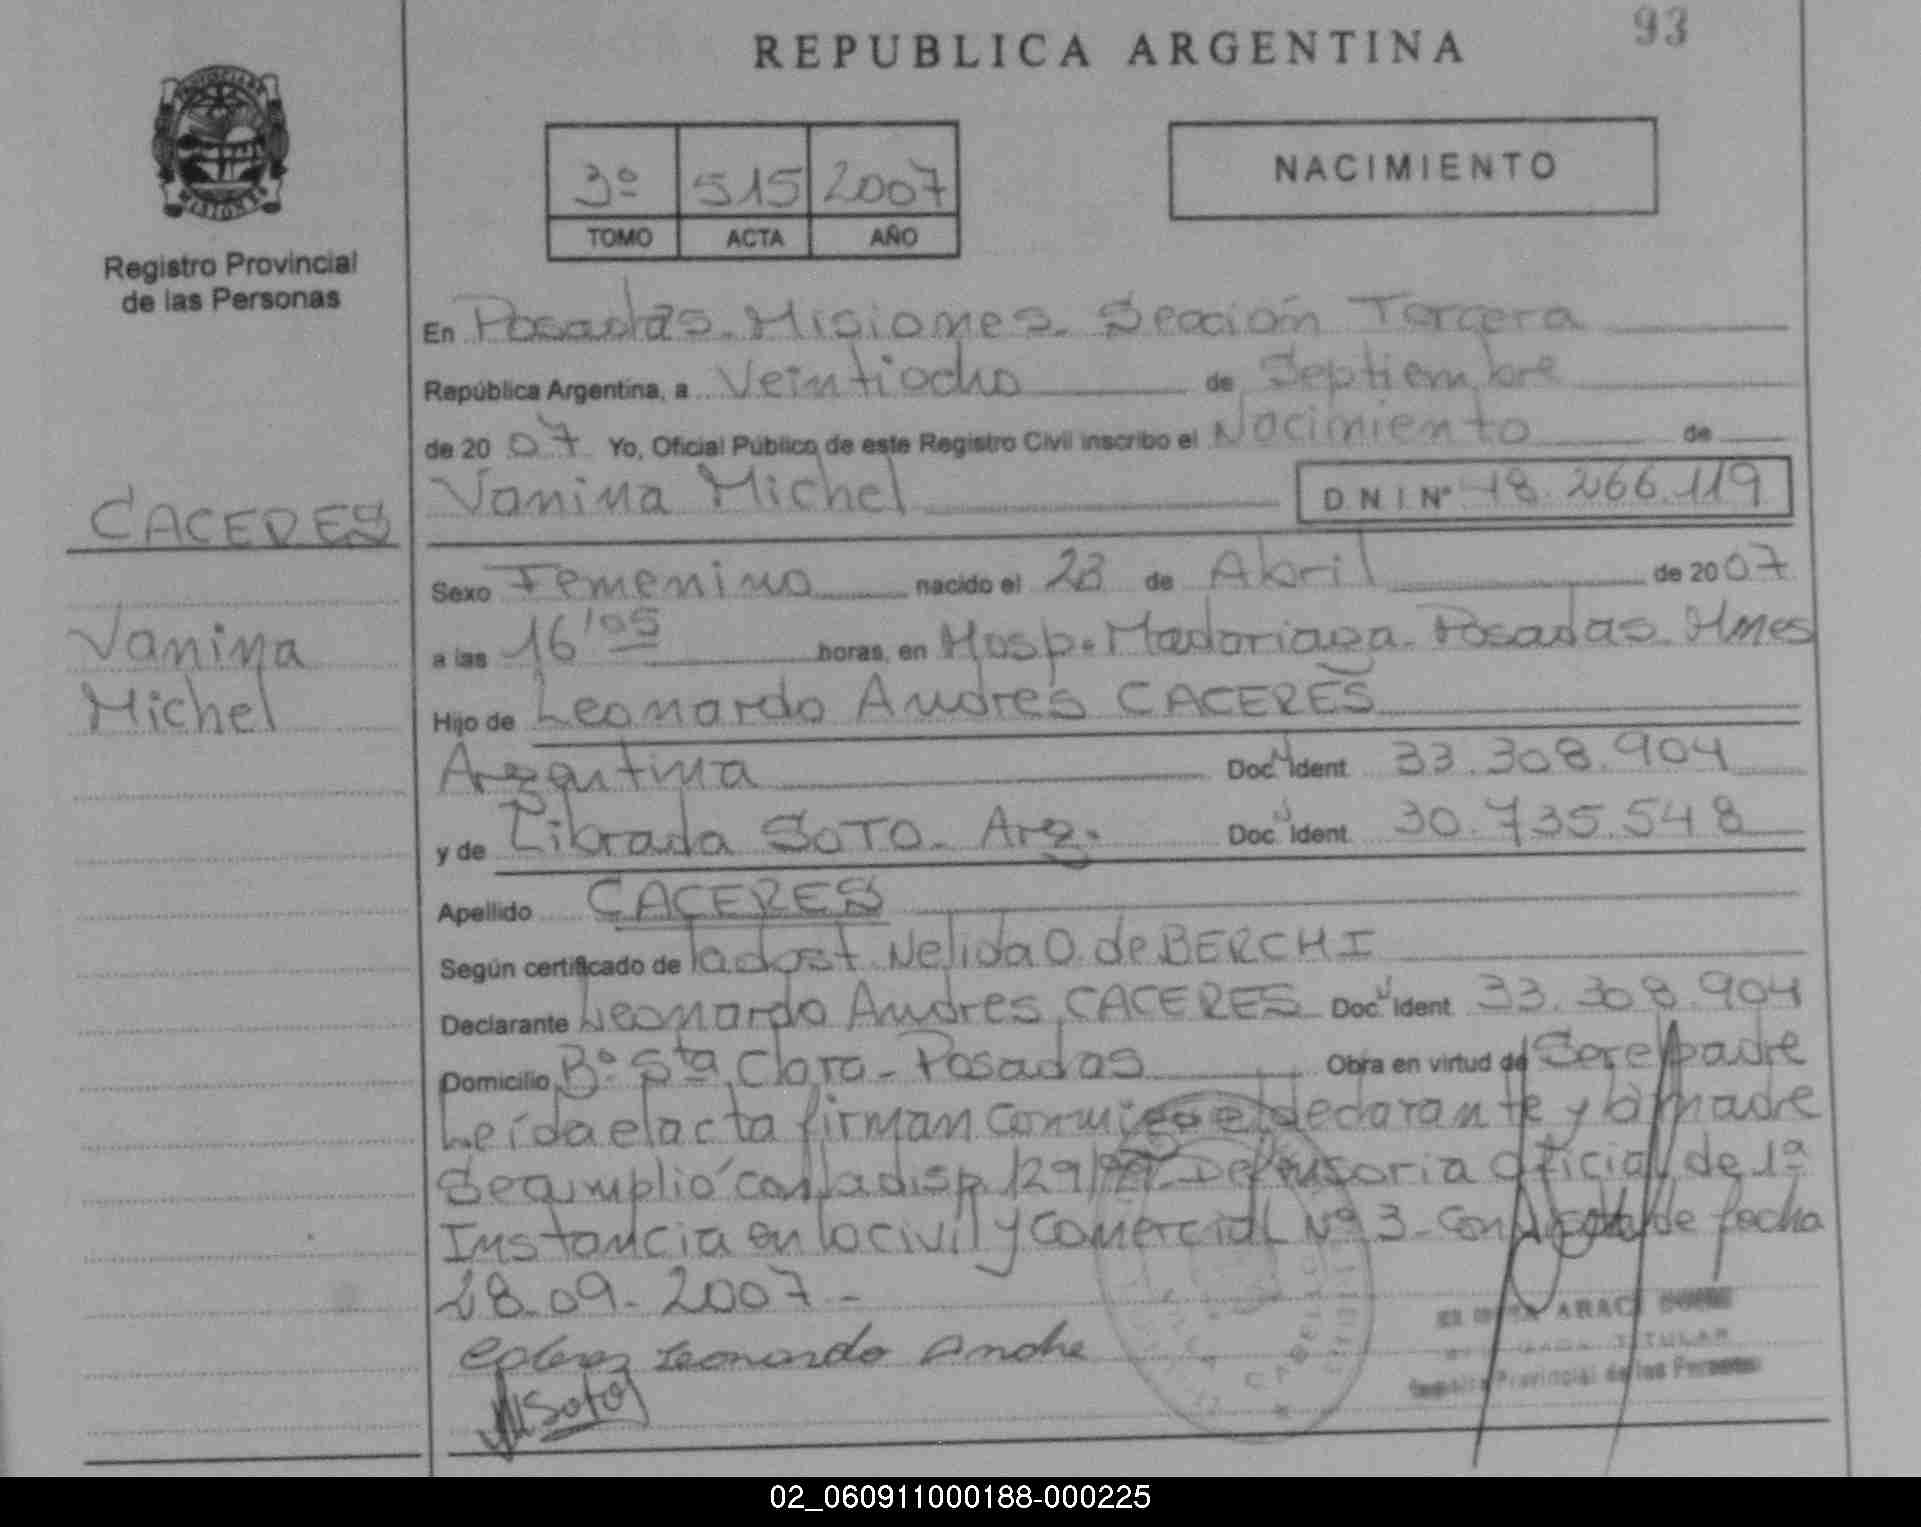 93
REPUBLICA ARGENTINA
PROVINCIA DE MISIONES
Registro Provincial
de las Personas
3º 515 2007
TOMO ACTA AÑO
NACIMIENTO
En Posadas. Misiones. Sección Tercera
República Argentina, a Veintiocho de Septiembre
de 2007 Yo, Oficial Público de este Registro Civil inscribo el Nacimiento de
Vanina Michel D N I Nº 48.266.119
CACERES
Vanina
Michel
Sexo Femenino nacido el 23 de Abril de 2007
a las 16'05 horas, en Hosp. Madariaga. Posadas. Mnes
Hijo de Leonardo Andres CACERES
Argentina Doc N Ident 33.308.904
y de Librada SOTO. Arg. Doc Ident 30.735.548
Apellido CACERES
Según certificado de la dost. Nelida O. de BERCHI
Declarante Leonardo Andres CACERES Doc Ident 33.308.904
Domicilio Bº Sta Clara - Posadas Obra en virtud de Ser el padre
Leída el acta firman conmigo el declarante y la madre
Se cumplió con la disp. 129/99. Defensoria Oficial de 1ª
Instancia en lo civil y Comercial Nº 3 - Con de fecha
28.09.2007 -
Leonardo Andre
Soto
ARACI
TITULAR
Provincial de las Personas
02_060911000188-000225